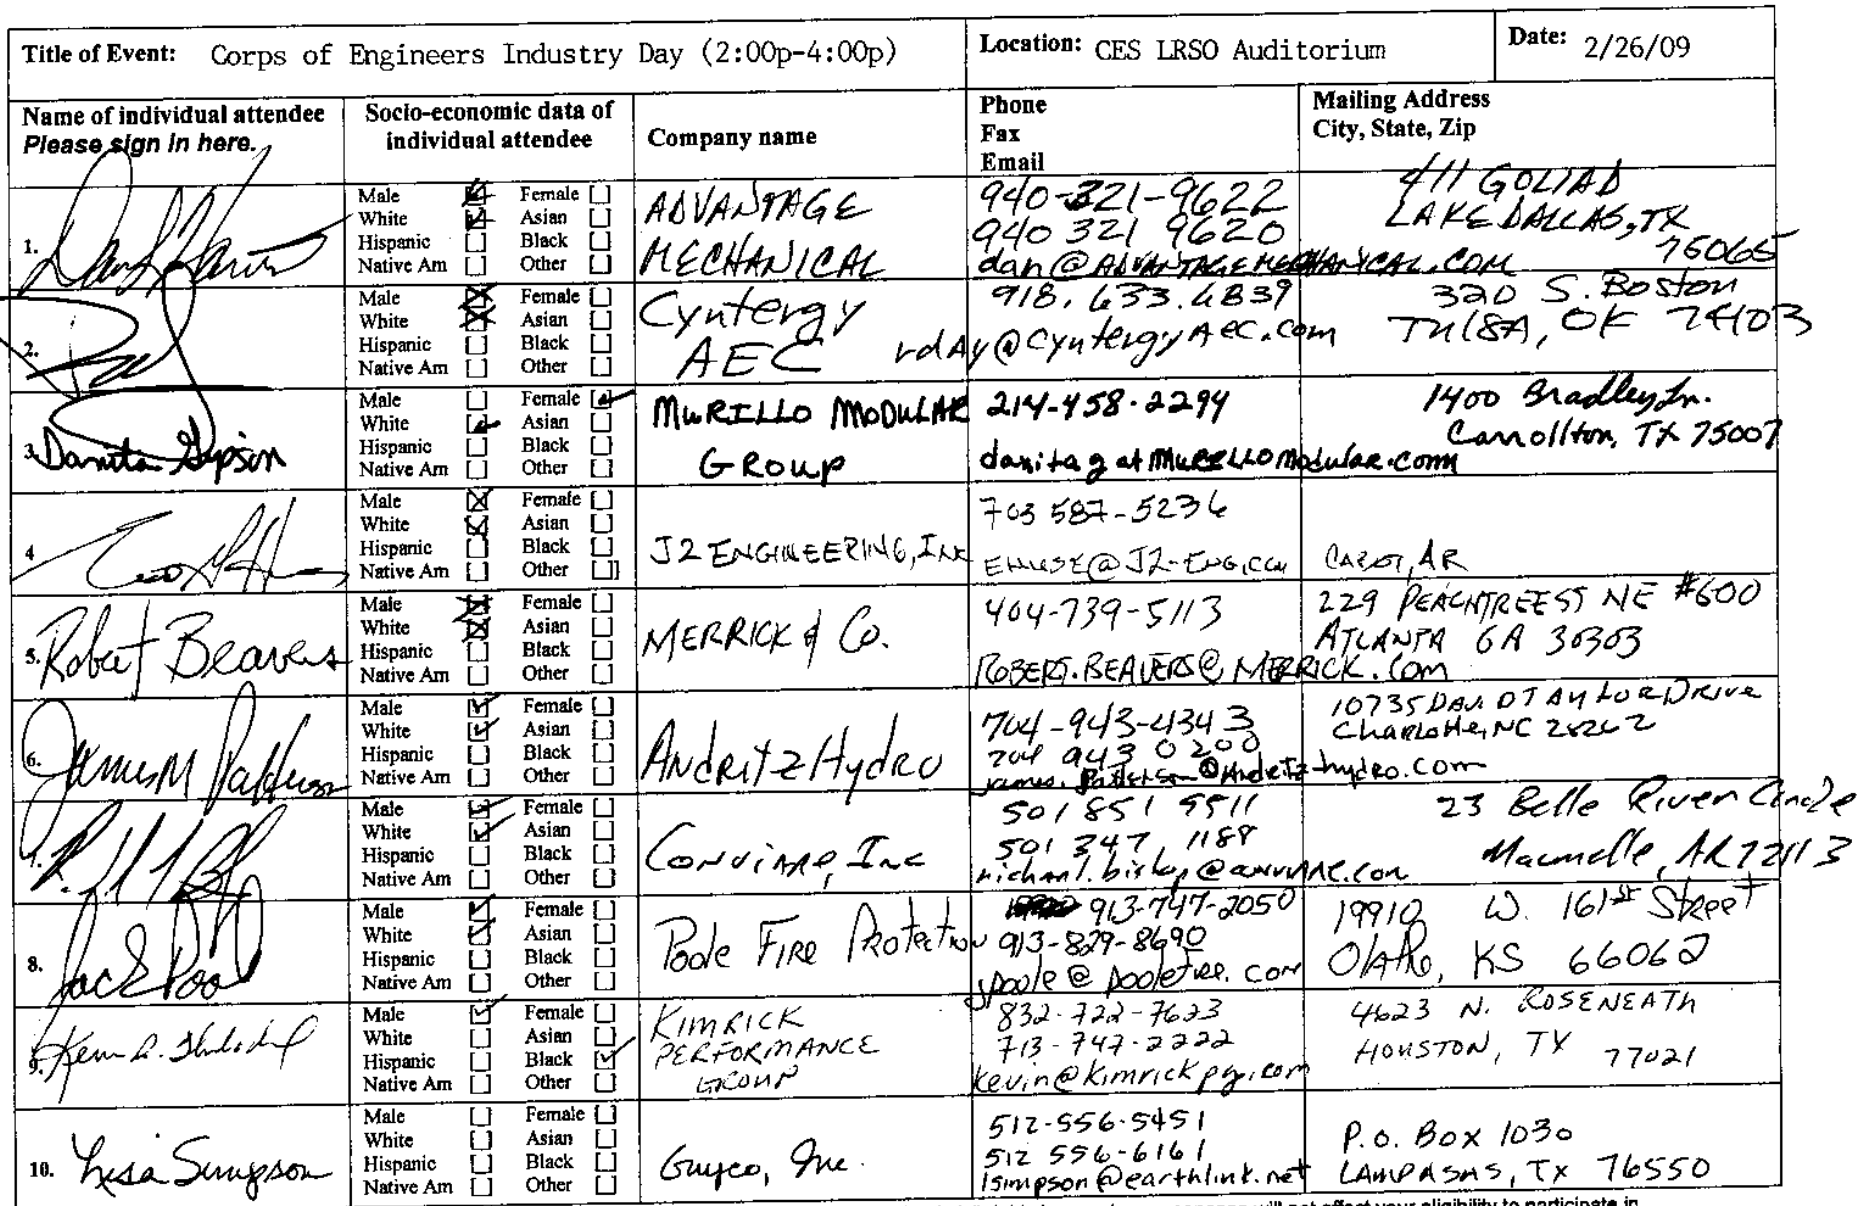 Title of Event: Corps of Engineers Industry Day (2:00p-4:00p) Location: CES LRSO Auditorium Date: 2/26/09
Name of individual attendee
Please sign in here.
Socio-economic data of
individual attendee
Company name
Phone
Fax
Email
Mailing Address
City, State, Zip
1.
Male Female
White Asian
Hispanic Black
Native Am Other
ADVANTAGE
MECHANICAL
940-321-9622
940 321 9620
dan@ADVANTAGEMECHANICAL.COM
411 GOLIAD
LAKE DALLAS, TX
75065
2.
Male Female
White Asian
Hispanic Black
Native Am Other
Cyntergy
AEC
918.633.4839
rdAy@cyntergyAec.com
320 S. Boston
TulsA, OK 74103
3. Danita Gipson
Male Female
White Asian
Hispanic Black
Native Am Other
MURILLO MODULAR
GROUP
214-458-2294
danitag at MURILLOModular.com
1400 Bradley Ln.
Carrollton, TX 75007
4
Male Female
White Asian
Hispanic Black
Native Am Other
J2 ENGINEERING, INC
703 587-5236
@J2-ENG.COM
CABOT, AR
5. Robert Beavers
Male Female
White Asian
Hispanic Black
Native Am Other
MERRICK & Co.
404-739-5113
ROBERT.BEAVERS@MERRICK.COM
229 PEACHTREE ST NE #600
ATLANTA GA 30303
6. James M Patterson
Male Female
White Asian
Hispanic Black
Native Am Other
Andritz Hydro
704-943-4343
704 943 0200
james.patterson@Andritz-hydro.com
10735 DAVID TAYLOR DRIVE
Charlotte, NC 28262
7.
Male Female
White Asian
Hispanic Black
Native Am Other
Conviare, Inc
501 851 9511
501 347 1188
23 Belle River Circle
Maumelle, AR 72113
8. Jack Poole
Male Female
White Asian
Hispanic Black
Native Am Other
Poole FIRE Protection
913-747-2050
913-829-8690
jpoole@poolefire.com
19910 W. 161st Street
Olathe, KS 66062
9.
Male Female
White Asian
Hispanic Black
Native Am Other
KIMRICK
PERFORMANCE
GROUP
832-722-7623
713-747-2222
kevin@kimrickpg.com
4623 N. ROSENEATH
HOUSTON, TX 77021
10. Lisa Simpson
Male Female
White Asian
Hispanic Black
Native Am Other
Guyco, Inc.
512-556-5451
512 556-6161
lsimpson@earthlink.net
P.O. Box 1030
LAMPASAS, TX 76550
will not affect your eligibility to participate in